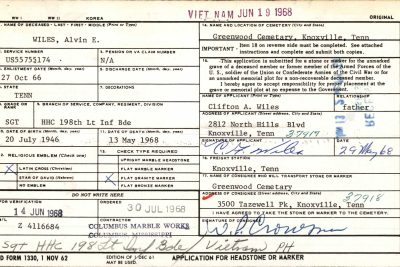 WW I WW II KOREA VIET NAM JUN 19 1968
ORIGINAL
NAME OF DECEASED - LAST - FIRST - MIDDLE (Print or Type)
WILES, Alvin E.
NAME AND LOCATION OF CEMETERY (City and State)
Greenwood Cemetary, Knoxville, Tenn
IMPORTANT - Item 18 on reverse side must be completed. See attached instructions and complete and submit both copies.
SERVICE NUMBER
US55755174
PENSION OR VA CLAIM NUMBER
N/A
ENLISTMENT DATE (Month, day, year)
27 Oct 66
DISCHARGE DATE (Month, day, year)
"This application is submitted for a stone or marker for the unmarked grave of a deceased member or former member of the Armed Forces of the U.S., soldier of the Union or Confederate Armies of the Civil War or for an unmarked memorial plot for a non-recoverable deceased member.
I hereby agree to accept responsibility for proper placement at the grave or memorial plot at no expense to the Government.
STATE
TENN
DECORATIONS
NAME OF APPLICANT (Print or Type)
RELATIONSHIP
Clifton A. Wiles father
GRADE OR RANK
SGT
BRANCH OF SERVICE, COMPANY, REGIMENT, DIVISION
HHC 198th Lt Inf Bde
ADDRESS OF APPLICANT (Street address, City and State)
2812 North Hills Blvd
Knoxville, Tenn 37917
DATE OF BIRTH (Month, day, year)
20 July 1946
DATE OF DEATH (Month, day, year)
13 May 1968
SIGNATURE OF APPLICANT
DATE
C. A. Wiles 29 May 68
RELIGIOUS EMBLEM (Check one)
CHECK TYPE REQUIRED
UPRIGHT MARBLE HEADSTONE
X LATIN CROSS (Christian)
X FLAT MARBLE MARKER
STAR OF DAVID (Hebrew)
FLAT GRANITE MARKER
NO EMBLEM
FLAT BRONZE MARKER
FREIGHT STATION
Knoxville, Tenn
NAME OF CONSIGNEE WHO WILL TRANSPORT STONE OR MARKER
Greenwood Cemetary
DO NOT WRITE HERE
ADDRESS OF CONSIGNEE (Street address, City and State)
3500 Tazewell Pk, Knoxville, Tenn 37918
14 JUN 1968
30 JUL 1968
I HAVE AGREED TO TAKE THE STONE OR MARKER TO THE CEMETERY.
Z 4116684
COLUMBUS MARBLE WORKS
COLUMBUS, MISSISSIPPI
SIGNATURE OF CONSIGNEE
Sgt HHC 198 Lt Inf Bde Vietnam PH
FORM 1330, 1 NOV 62
APPLICATION FOR HEADSTONE OR MARKER